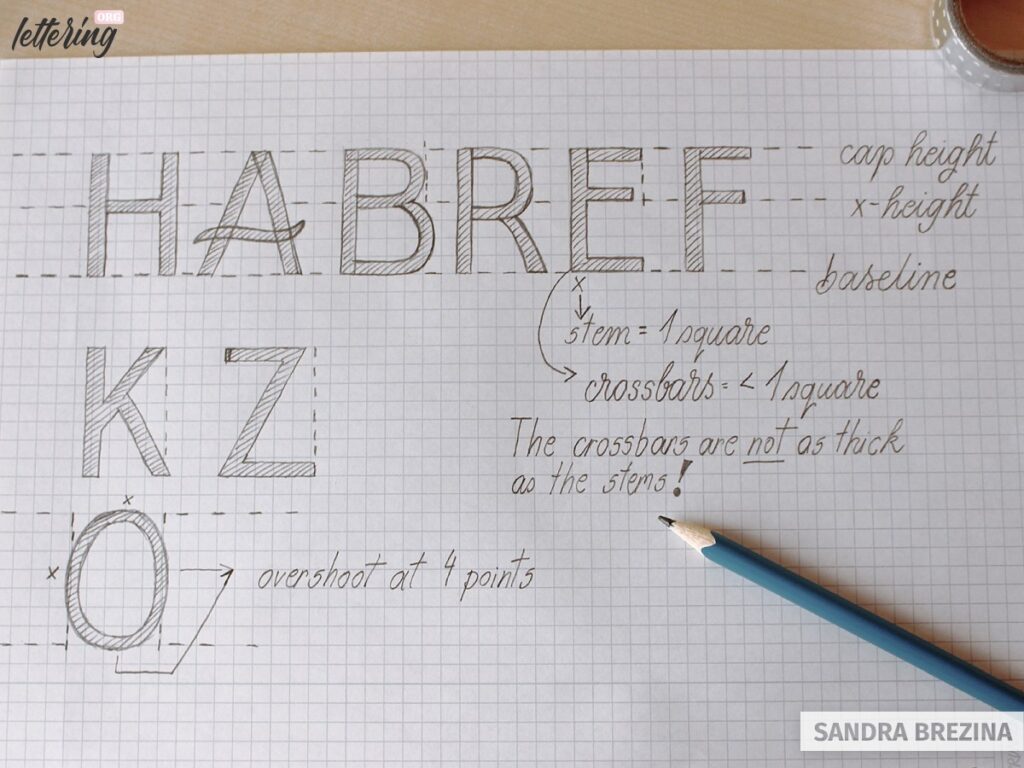 lettering
ORG
HABREF
cap height
x-height
baseline
x
stem = 1 square
crossbars = < 1 square
The crossbars are not as thick
as the stems!
KZ
x
x
O
overshoot at 4 points
SANDRA BREZINA